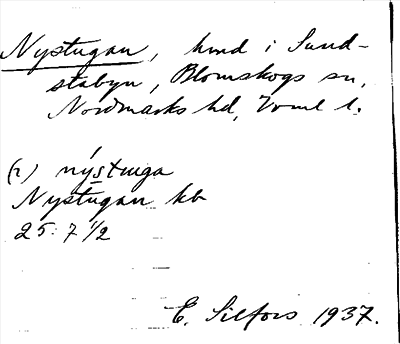 Nystugan, hmd i Sund-
stabyn, Blomskogs sn,
Nordmarks hd, Vrml l.
(r) nýstuga
Nystugan kb
25: 7 1/2
E. Silfors 1937.